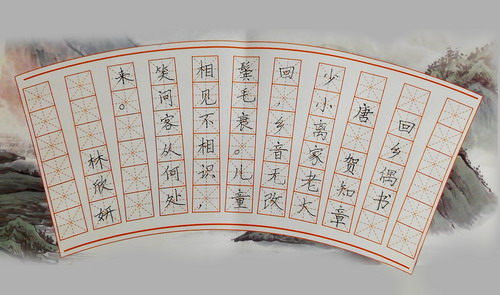 回乡偶书
唐 贺知章
少小离家老大
回，乡音无改
鬓毛衰。儿童
相见不相识，
笑问客从何处
来。
林欣妍